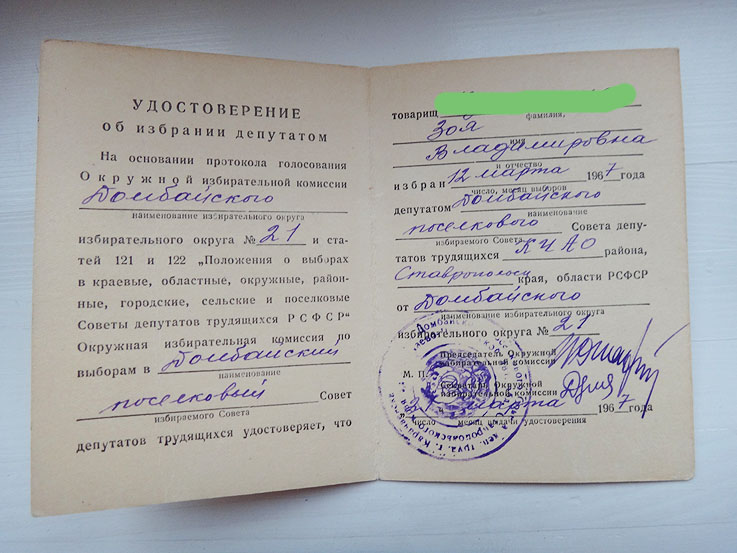 УДОСТОВЕРЕНИЕ
об избрании депутатом
На основании протокола голосования
Окружной избирательной комиссии
Домбайского
наименование избирательного округа
избирательного округа № 21 и ста-
тей 121 и 122 „Положения о выборах
в краевые, областные, окружные, район-
ные, городские, сельские и поселковые
Советы депутатов трудящихся РСФСР“
Окружная избирательная комиссия по
выборам в Домбайский
наименование
поселковый Совет
избираемого Совета
депутатов трудящихся удостоверяет, что
товарищ
фамилия,
Зоя
имя
Владимировна
и отчество
избран 12 марта 1967 года
число, месяц выборов
депутатом Домбайского
наименование
поселкового Совета депу-
избираемого Совета
татов трудящихся КЧАО района,
края, области РСФСР
от Домбайского
наименование избирательного округа
избирательного округа № 21
Председатель Окружной
избирательной комиссии
М. П.
Секретарь Окружной
избирательной комиссии
марта 1967 года
число месяц выдачи удостоверения